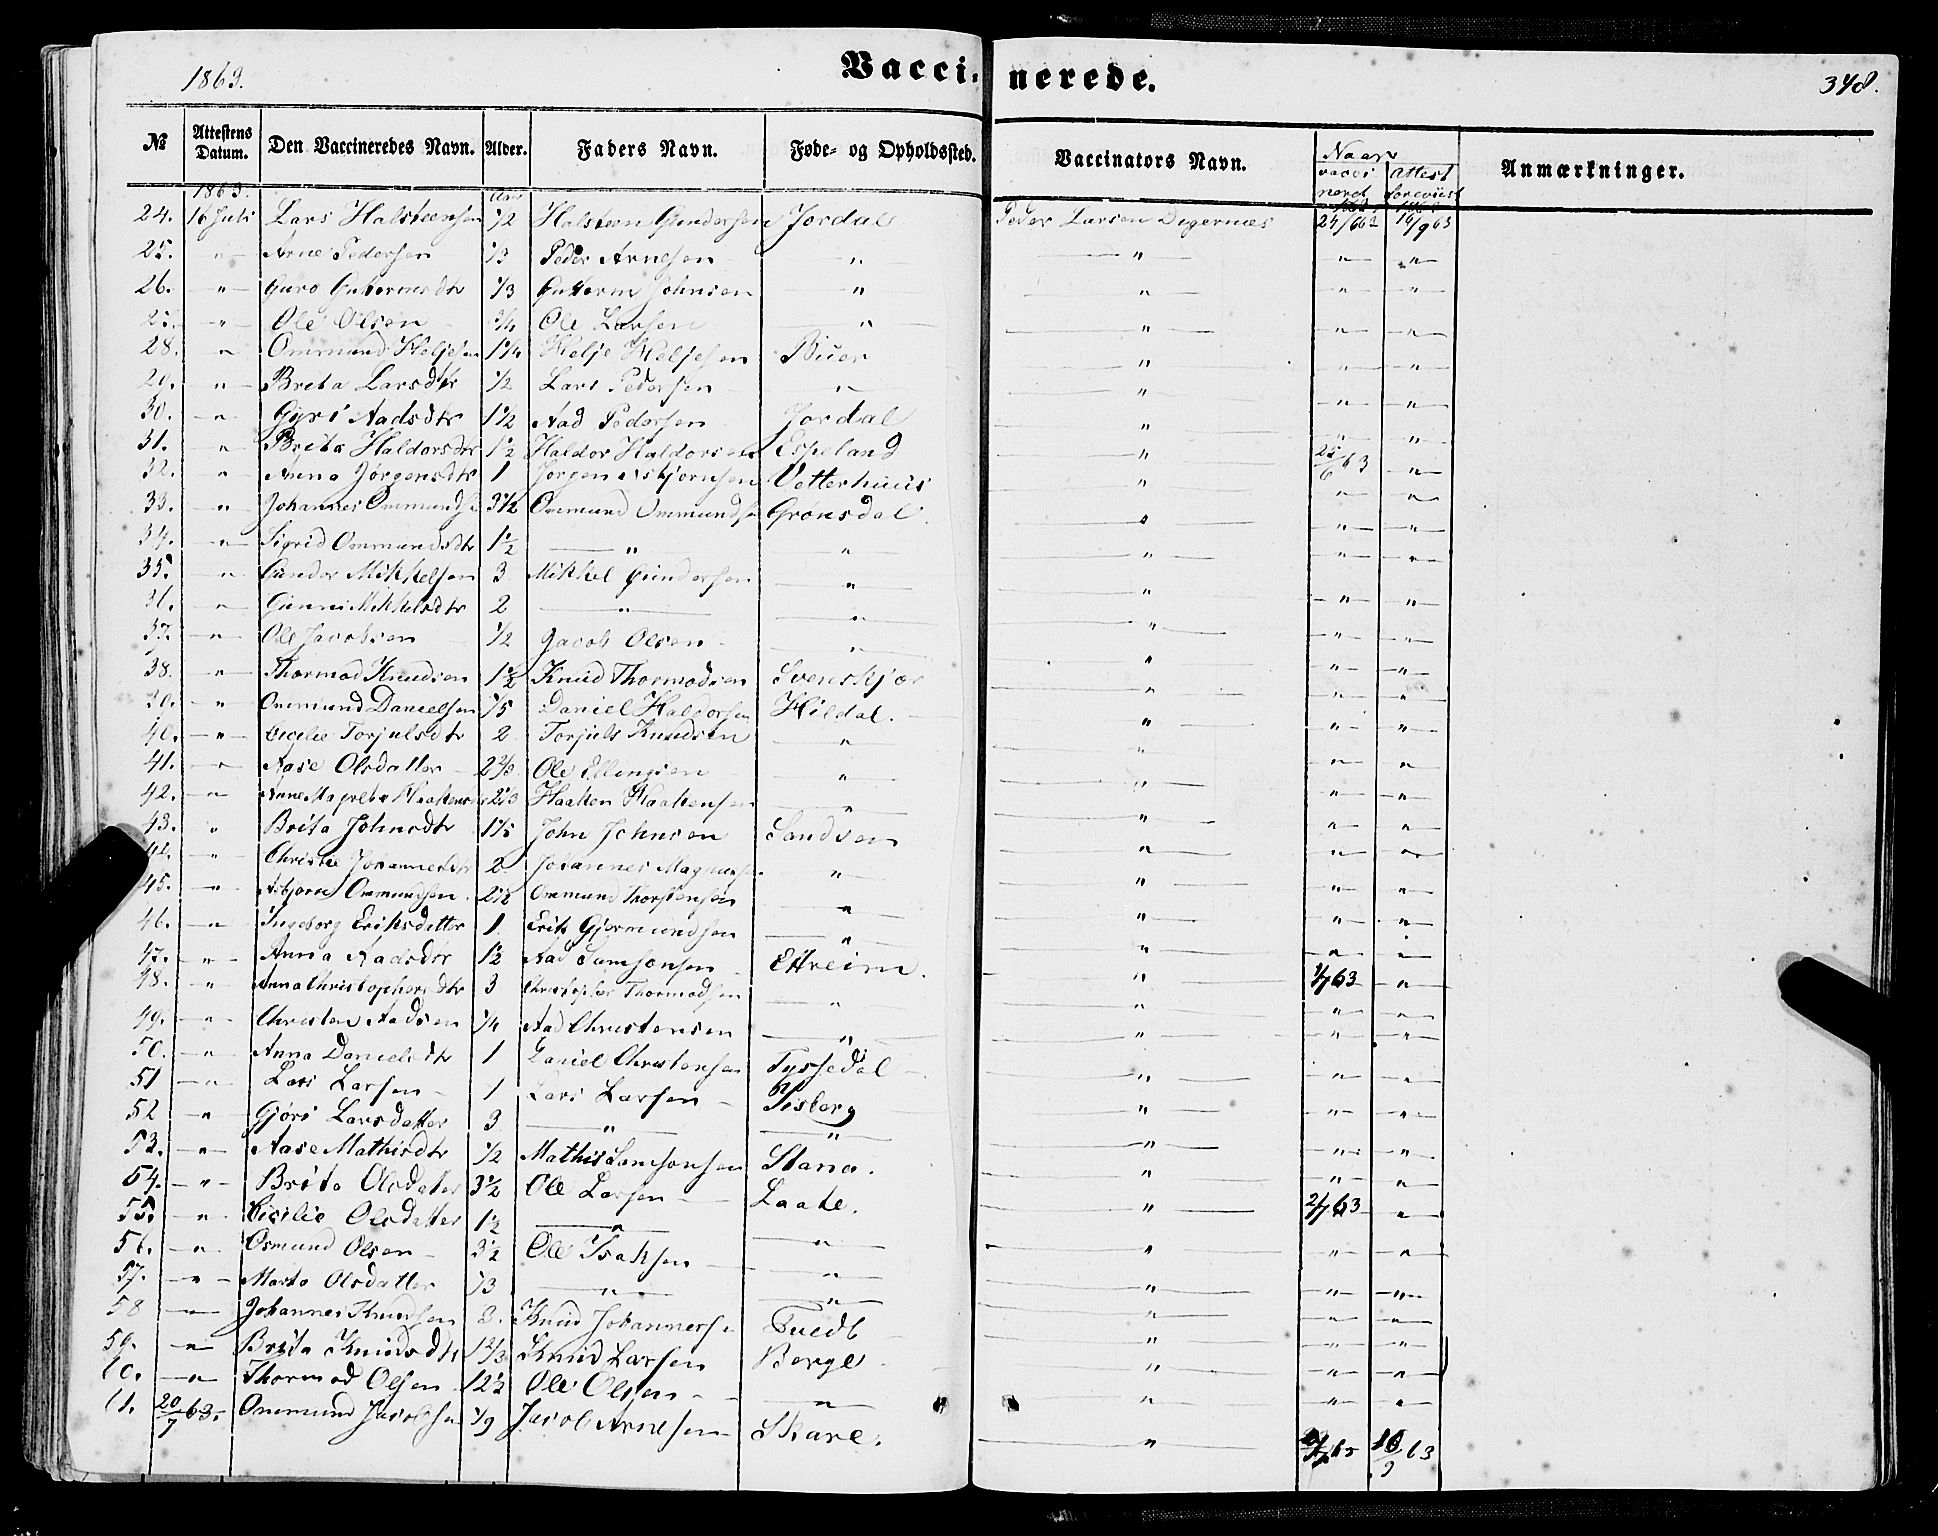 1863. Vaccinerede. 348.
№ Attestens Datum. Den Vaccineredes Navn. Alder. Faders Navn. Føde- og Opholdssted. Vaccinators Navn. Naar vacci neret Attest foreviist Anmærkninger.
1863. Aar
24. 16 Juli Lars Halsteensen 1/2 Halsteen Gundersen Jordal Peder Larsen Digernæs 24/663 16/9 63
25. " Arne Pedersen 1/3 Peder Arnesen " " " "
26. " Guro Guttormsdtr 1/3 Guttorm Johnsen " " " "
27. " Ole Olsen 3/4 Ole Larsen " " " "
28. " Ommund Heljesen 1 1/4 Helje Heljesen Buer " " "
29. " Brita Larsdtr 1/2 Lars Pedersen " " " "
30. " Gyri Aadsdtr 1 1/2 Aad Pedersen Jordal " " "
31. " Brita Haldorsdtr 1 1/2 Haldor Haldorsen Espeland " 25/6 63 "
32. " Anna Jørgensdtr 1 Jørgen Asbjørnsen Vetterhuus " " "
33. " Johannes Ommundse 3 1/2 Ommund Ommundse Grønsdal " " "
34. " Sigrid Ommundsdtr 1 1/2 " " " " "
35. " Gunder Mikkelsen 3 Mikkel Gundersen " " " "
36. " Mikkelsdtr 2 " " " " "
37. " Ole Jacobsen 1/2 Jacob Olsen " " " "
38. " Thormod Knudsen 1 1/2 Knud Thormodsen " " "
39. " Ommund Danielsen 1/5 Daniel Haldorsen Hildal. " " "
40. " Cecilie Torjulsdtr 2 Torjuls Knudsen " " " "
41. " Aase Olsdatter 2 2/3 Ole Ellingsen " " " "
42. " Anne Magreta Haakens 2 1/3 Haaken Haakensen " " " "
43. " Brita Johnsdtr John Johnsen Sandven " " "
44. " Johannesdtr 2 Johannes Magnuss " " " "
45. " Asbjørn Ommundsen. 2 1/2 Ommund Thorstensen " " " "
46. " Ingeborg Eriksdatter 1. Erik Gjermundsen " " " "
47. " Anna Aadsdtr 1/2 Aad Samsonsen Eitreim. " " "
48. " Anna Christophersdtr 3 Christopher Thormodsen " " 1/7 63 "
49. " Christen Aadsen 1/4 Aad Christensen " " " "
50. " Anna Danielsdtr 1 Daniel Christensen Tyssedal " " "
51 " Lars Larsen 1 Lars Larsen Tisberg " " "
52 " Gjøri Larsdatter 3 " " " " "
53. " Aase Mathisdtr 1/2 Mathis Samsonsen Stana. " " "
54. " Brita Olsdatter 3 1/2 Ole Larsen Laate. " " "
55. " Cicilie Olsdatter 1 1/2 " " " 2/7 63 "
56. " Osmund Olsen 3 1/2 Ole Isaksen " " " "
57. " Marta Olsdatter 1/3 " " " " "
58 " Johannes Knudsen 3. Knud Johannesse Tvedt " " "
59. " Brita Knudsdtr 1 2/3 Knud Larsen Berge " " "
60. " Thormod Olsen 12 1/2 Ole Olsen " " " "
61. 20/7 63. Ommund Jacobsen 1/9 Jacob Arnesen Skare. " 16/9 63